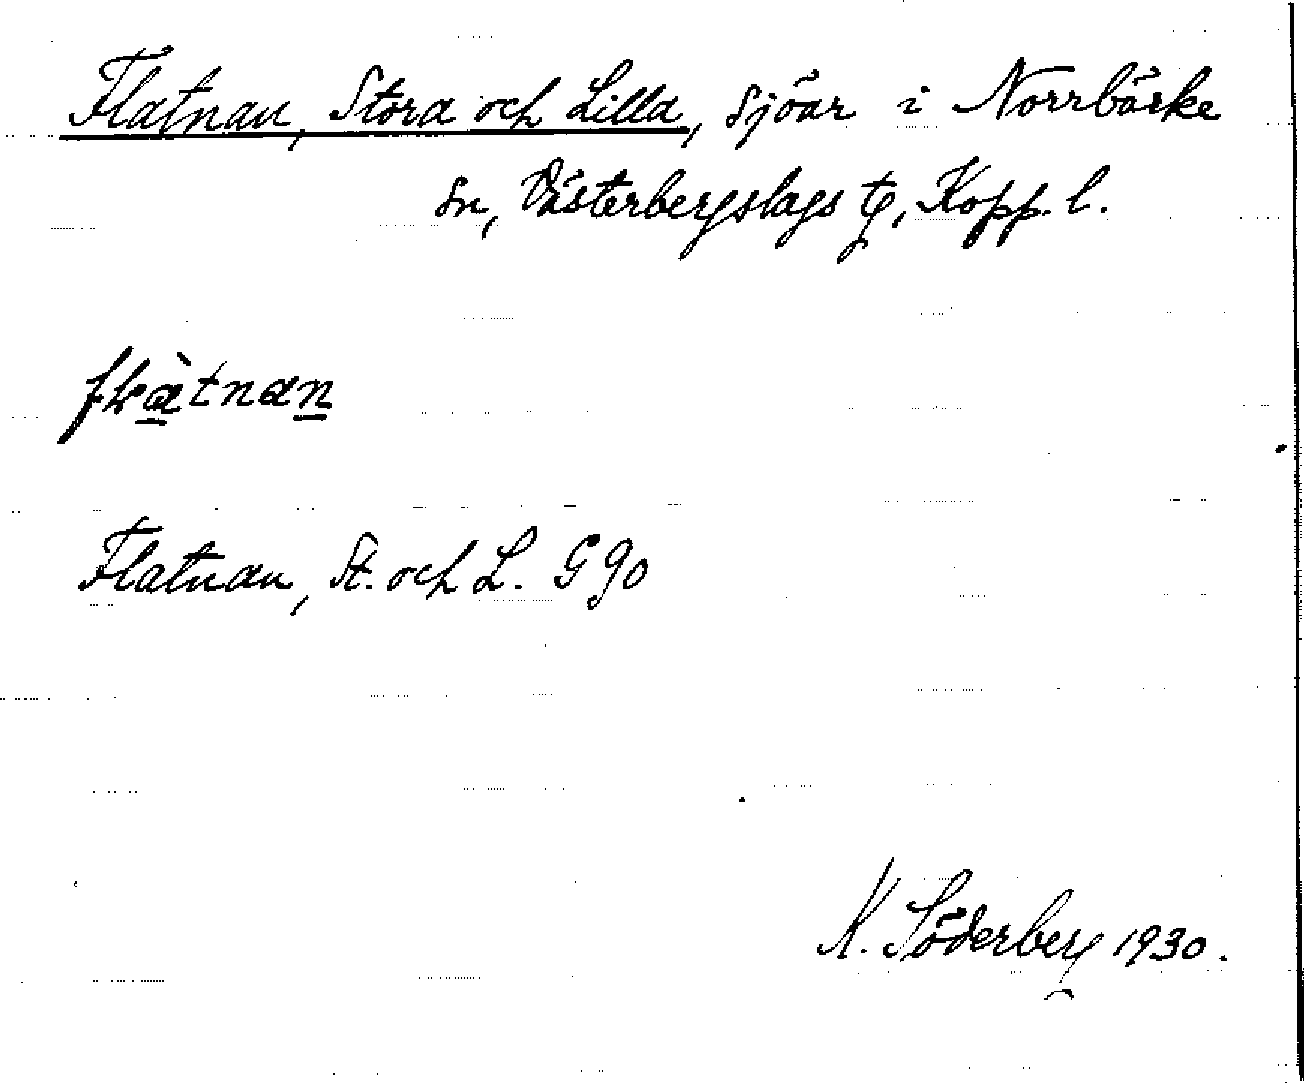 Flatnan, Stora och Lilla, sjöar i Norrbärke
sn, Västerbergslags tg, Kopp. l.
fḷàtnan
Flatnan, St. och L. G 90
K. Söderberg 1930.